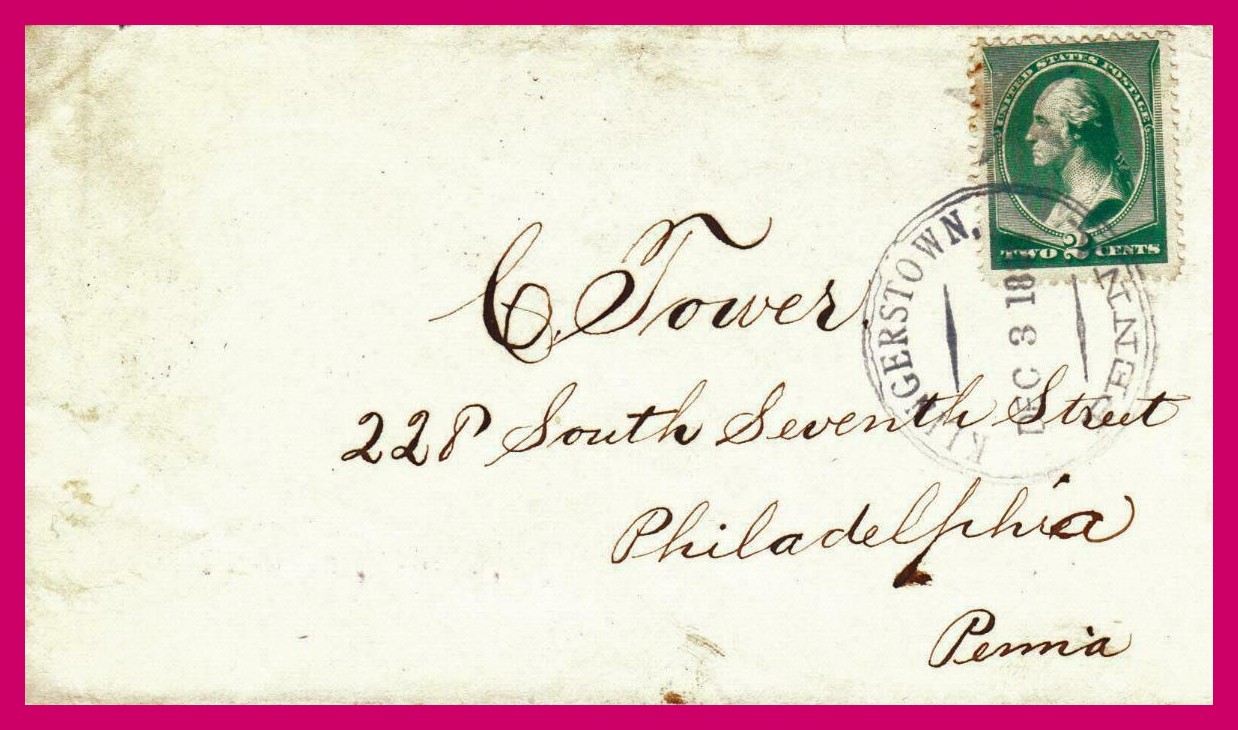 UNITED STATES POSTAGE
TWO 2 CENTS
KLINGERSTOWN,
PENN
DEC 3 18
C. Tower.
228 South Seventh Street
Philadelphia
Penn'a